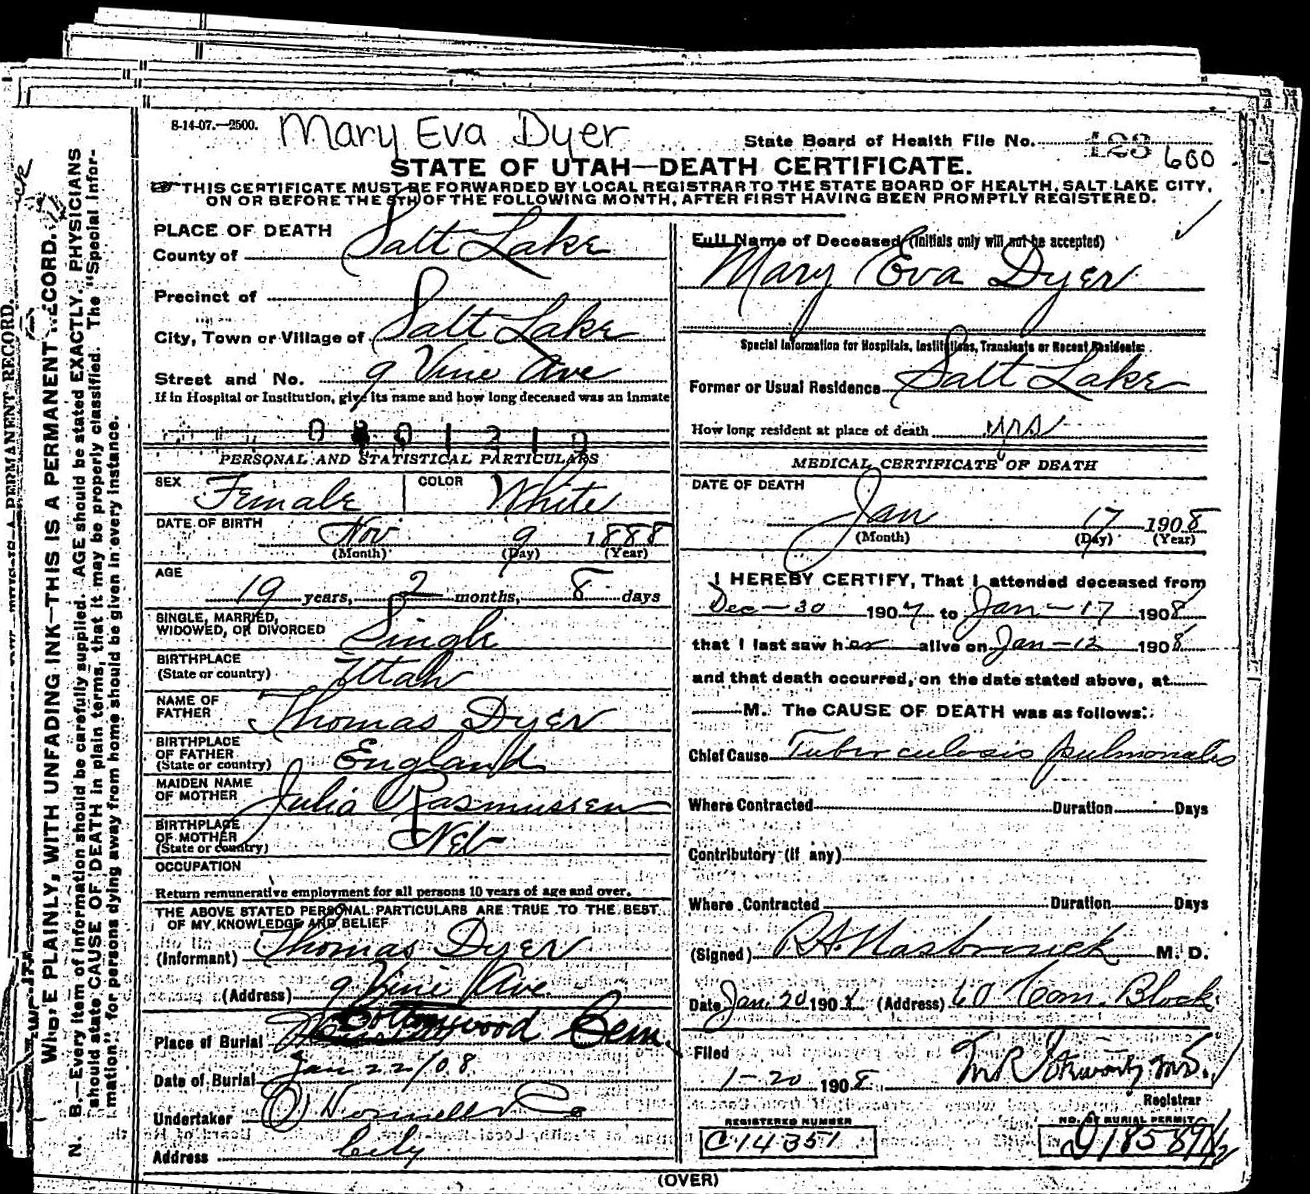 8-14-07.—2500. Mary Eva Dyer State Board of Health File No. 123 600
STATE OF UTAH—DEATH CERTIFICATE.
THIS CERTIFICATE MUST BE FORWARDED BY LOCAL REGISTRAR TO THE STATE BOARD OF HEALTH, SALT LAKE CITY,
ON OR BEFORE THE 5TH OF THE FOLLOWING MONTH, AFTER FIRST HAVING BEEN PROMPTLY REGISTERED.
PLACE OF DEATH
County of Salt Lake
Precinct of
City, Town or Village of Salt Lake
Street and No. 9 Vine Ave
If in Hospital or Institution, give its name and how long deceased was an inmate
PERSONAL AND STATISTICAL PARTICULARS
SEX Female COLOR White
DATE OF BIRTH Nov 9 1888
(Month) (Day) (Year)
AGE
19 years, 2 months, 8 days
SINGLE, MARRIED,
WIDOWED, OR DIVORCED Single
BIRTHPLACE
(State or country) Utah
NAME OF
FATHER Thomas Dyer
BIRTHPLACE
OF FATHER
(State or country) England
MAIDEN NAME
OF MOTHER Julia Rasmussen
BIRTHPLACE
OF MOTHER
(State or country) Neb
OCCUPATION
Return remunerative employment for all persons 10 years of age and over.
THE ABOVE STATED PERSONAL PARTICULARS ARE TRUE TO THE BEST
OF MY KNOWLEDGE AND BELIEF
(Informant) Thomas Dyer
(Address) 9 Vine Ave
Place of Burial Cottonwood Cem.
Date of Burial Jan 22/08
Undertaker Co
Address City
Full Name of Deceased (Initials only will not be accepted)
Mary Eva Dyer
Special Information for Hospitals, Institutions, Transients or Recent Residents:
Former or Usual Residence Salt Lake
How long resident at place of death yrs
MEDICAL CERTIFICATE OF DEATH
DATE OF DEATH
Jan 17 1908
(Month) (Day) (Year)
I HEREBY CERTIFY, That I attended deceased from
Dec-30 1907 to Jan-17 1908
that I last saw her alive on Jan-12 1908
and that death occurred, on the date stated above, at
M. The CAUSE OF DEATH was as follows:
Chief Cause Tuberculosis pulmonalis
Where Contracted Duration Days
Contributory (if any)
Where Contracted Duration Days
(Signed) R A Hasbrouck M. D.
Date Jan. 20 1908 (Address) 60 Com. Block
Filed
1-20 1908
Registrar
REGISTERED NUMBER
C14351
NO. OF BURIAL PERMIT
(OVER)
WRITE PLAINLY, WITH UNFADING INK—THIS IS A PERMANENT RECORD.
N. B.—Every item of information should be carefully supplied. AGE should be stated EXACTLY. PHYSICIANS
should state CAUSE OF DEATH in plain terms, that it may be properly classified. The "Special Infor-
mation" for persons dying away from home should be given in every instance.
A PERMANENT RECORD.